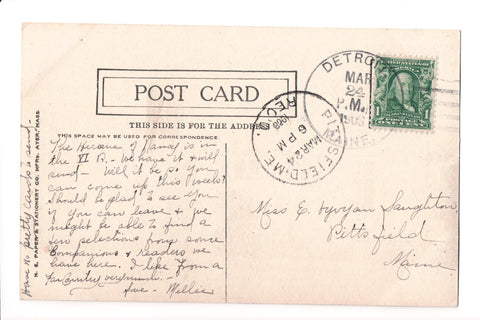 POST CARD
THIS SIDE IS FOR THE ADDRESS
THIS SPACE MAY BE USED FOR CORRESPONDENCE.
The Heroine of Nancy is in
the VI R. - We have it & will
send - Will it be so you
can come up this week?
Should be glad to see you
if you can leave & we
might be able to find a
few selections from some
Companions & Readers we
have here. I like from a
Far Country very much. -
Love - Millie
Have no pretty cards to send -
N. E. PAPER & STATIONERY CO. MFRS. AYER, MASS.
DETROIT
MAR
24
P.M.
MAINE
PITTSFIELD, ME.
MAR 24
6 PM
REC'D
1
Miss E. Vivian Saughton
Pittsfield
Maine